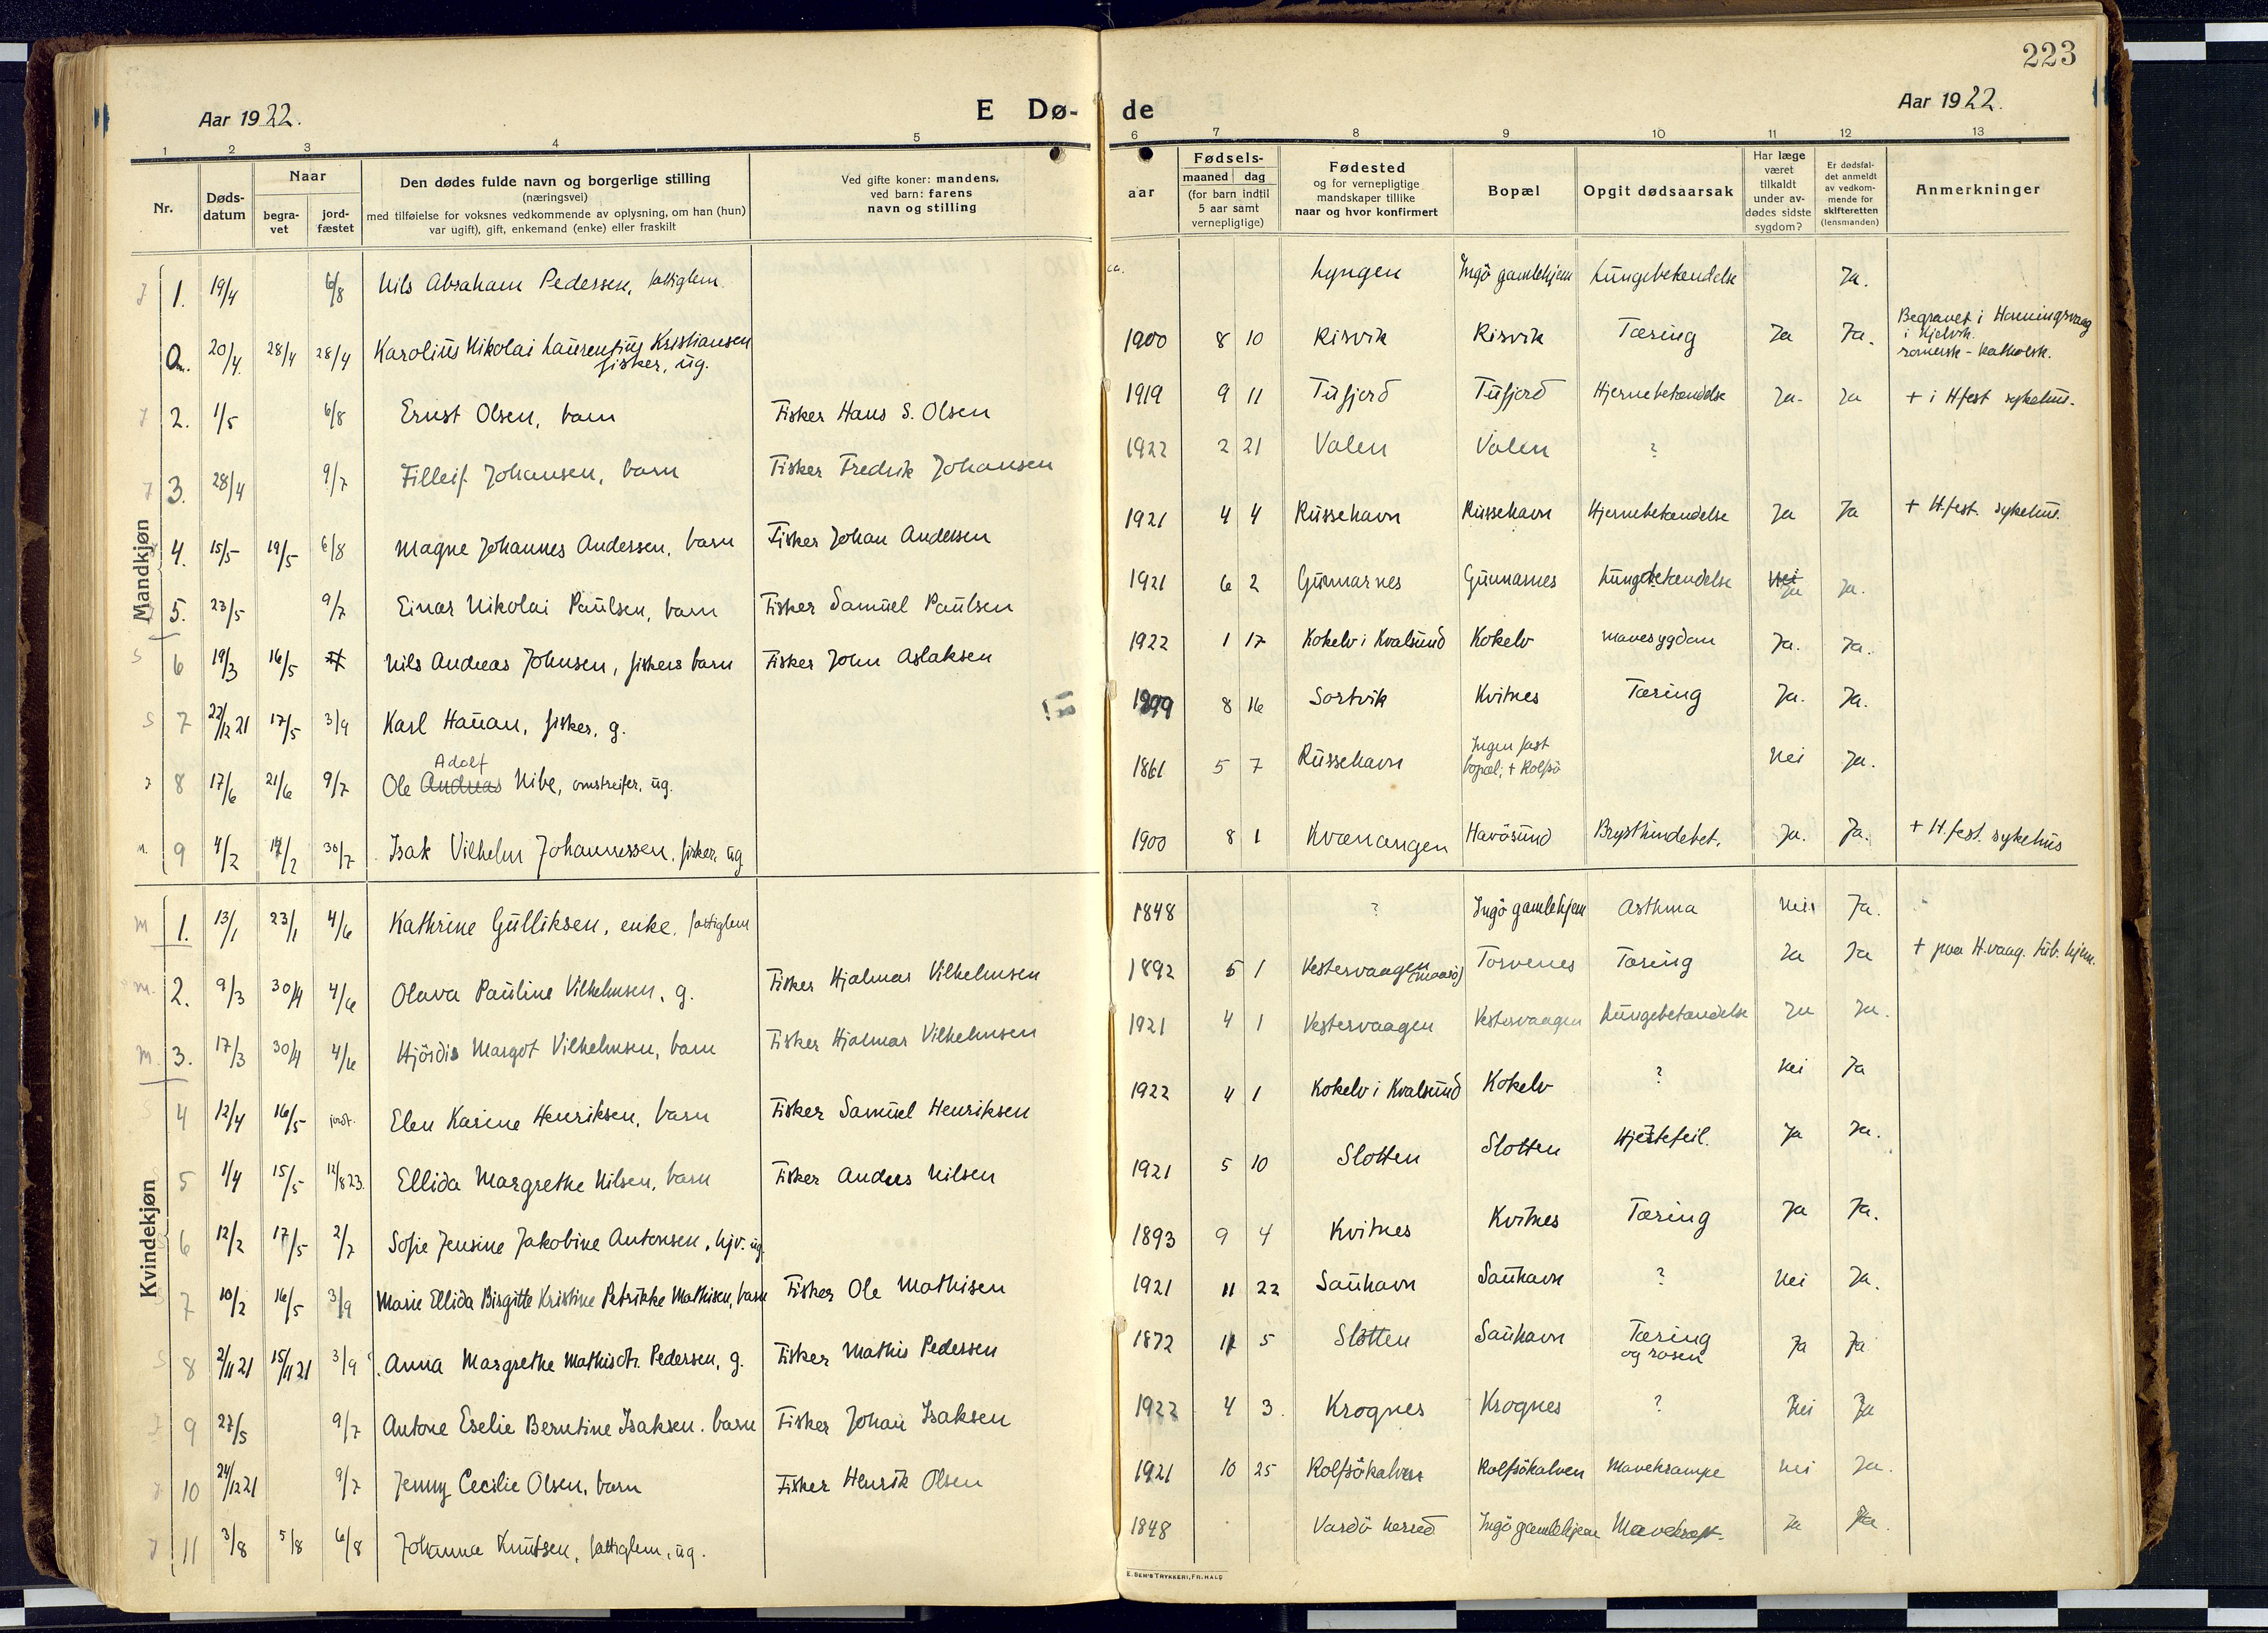 223
Aar 1922. E Dø- de Aar 1922.
1 2 3 4 5 6 7 8 9 10 11 12 13
Nr.
Døds-
datum
Naar
begra-
vet
jord-
fæstet
Den dødes fulde navn og borgerlige stilling
(næringsvei)
med tilføielse for voksnes vedkommende av oplysning, om han (hun)
var ugift), gift, enkemand (enke) eller fraskilt
Ved gifte koner: mandens,
ved barn: farens
navn og stilling
aar
Fødsels-
maaned dag
(for barn indtil
5 aar samt
vernepligtige)
Fødested
og for vernepligtige
mandskaper tillike
naar og hvor konfirmert
Bopæl
Opgit dødsaarsak
Har læge
været
tilkaldt
under av-
dødes sidste
sygdom?
Er dødsfal-
det anmeldt
av vedkom-
mende for
skifteretten
(lensmanden)
Anmerkninger
Mandkjøn
1. 19/4 6/8 Nils Abraham Pedersen, fattiglem. ca. Lyngen Ingö gamlehjem Lungebetændelse Ja.
20/4. 28/4 28/4 Karolius Nikolai Laurentius Kristiansen fisker, ug. 1900 8 10 Risvik Risvik Tæring Ja Ja. Begravet i Honningsvaag i Kjelvik. romersk-katholsk.
2. 1/5 6/8 Ernst Olsen, barn Fisker Hans S. Olsen 1919 9 11 Tufjord Tufjord Hjernebetændelse Ja. Ja + i H.fest sykehus.
3. 28/4 9/7 Filleif Johansen, barn Fisker Fredrik Johansen 1922 2 21 Valen Valen ?
4. 15/5 19/5 6/8 Magne Johannes Andersen, barn Fisker Johan Andersen 1921 4 4 Russehavn Russehavn Hjernebetændelse Ja Ja + H.fest. sykehus.
5. 23/5 9/7 Einar Nikolai Paulsen, barn Fisker Samuel Paulsen 1921 6 2 Gunnarnes Gunnarnes Lungebetændelse Nei Ja Ja.
6 19/3 16/5 Nils Andreas Johnsen, fiskers barn Fisker John Aslaksen 1922 1 17 Kokelv i Kvalsund Kokelv mavesygdom Ja. Ja.
7 22/12 21 17/5 3/9 Karl Hauan, fisker, g. 1899 8 16 Sortvik Kvitnes Tæring Ja. Ja.
8 17/6 21/6 9/7 Ole Andreas Adolf Nibe, omstreifer, ug. 1861 5 7 Russehavn Ingen fast bopæl; + Rolfsö Nei Ja.
9 4/2 14/2 30/7 Isak Vilhelm Johannessen, fisker, ug 1900 8 1 Kvænangen Havösund Brysthindebet. Ja. Ja. + H.fest. sykehus
Kvindekjøn
1. 13/1 23/1 4/6 Kathrine Gulliksen, enke, fattiglem 1848 ? Ingö gamlehjem Asthma Nei Ja.
2. 9/3 30/4 4/6 Olava Pauline Vilhelmsen, g. Fisker Hjalmar Vilhelmsen 1892 5 1 Vestervaagen (Maasö) Torvenes Tæring Ja Ja + paa H.vaag. tub. hjem.
3. 17/3 30/4 4/6 Hjördis Margot Vilhelmsen, barn Fisker Hjalmar Vilhelmsen 1921 4 1 Vestervaagen Vestervaagen Lungebetændelse Ja Ja.
4 12/4 16/5 jordf. Elen Karine Henriksen, barn Fisker Samuel Henriksen 1922 4 1 Kokelv i Kvalsund Kokelv ? Nei Ja
5 1/4 15/5 12/8 23. Ellida Margrethe Nilsen, barn Fisker Anders Nilsen 1921 5 10 Slotten Slotten Hjertefeil. Ja Ja.
6 12/2 17/5 2/7 Sofie Jensine Jakobine Antonsen, hjv. ug. 1893 9 4 Kvitnes Kvitnes Tæring Ja Ja.
7 10/2 16/5 3/9 Marie Ellida Birgitte Kristine Petrikke Mathisen, barn Fisker Ole Mathisen 1921 11 22 Sauhavn Sauhavn ? Nei Ja.
8 2/11 21 15/11 21 3/9 Anna Margrethe Mathisdtr. Pedersen, g. Fisker Mathis Pedersen 1872 11 5 Slotten Sauhavn Tæring og rosen Ja Ja
9 27/5 9/7 Antone Eselie Berntine Isaksen. barn Fisker Johan Isaksen 1922 4 3. Krognes Krognes ? Nei Ja
10 24/12 21 9/7 Jenny Cecilie Olsen, barn Fisker Henrik Olsen 1921 10 25 Rolfsökalven Rolfsökalven Mavekrampe Nei Ja.
11 3/8 5/8 6/8 Johanna Knutsen, fattiglem, ug. 1848 Vardö herred Ingö gamlehjem Mavekræft. Ja Ja.
E. SEM'S TRYKKERI, FR.HALD